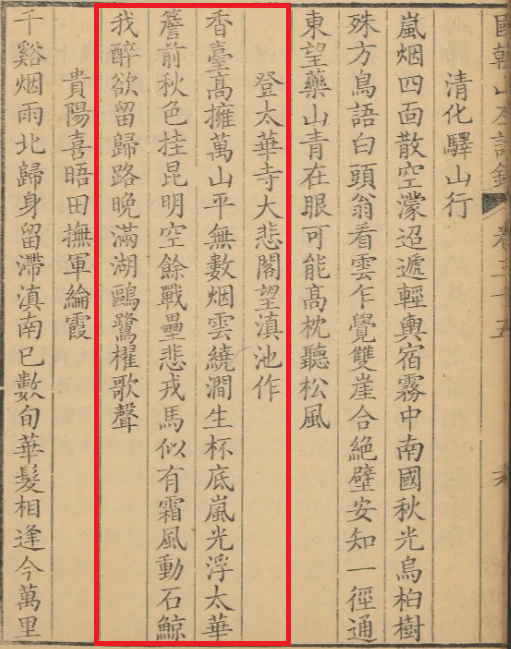 國朝山左詩鈔 卷三十五
清化驛山行
嵐烟四面散空濛迢遞輕輿宿霧中南國秋光烏桕樹
殊方鳥語白頭翁看雲乍覺雙崖合絶壁安知一徑通
東望藥山青在眼可能高枕聽松風
登太華寺大悲閣望滇池作
香臺高擁萬山平無數烟雲繞澗生杯底嵐光浮太華
簷前秋色挂昆明空餘戰壘悲戎馬似有霜風動石鯨
我醉欲留歸路晚滿湖鷗鷺櫂歌聲
貴陽喜晤田撫軍綸霞
千谿烟雨北歸身留滯滇南已數旬華髮相逢今萬里